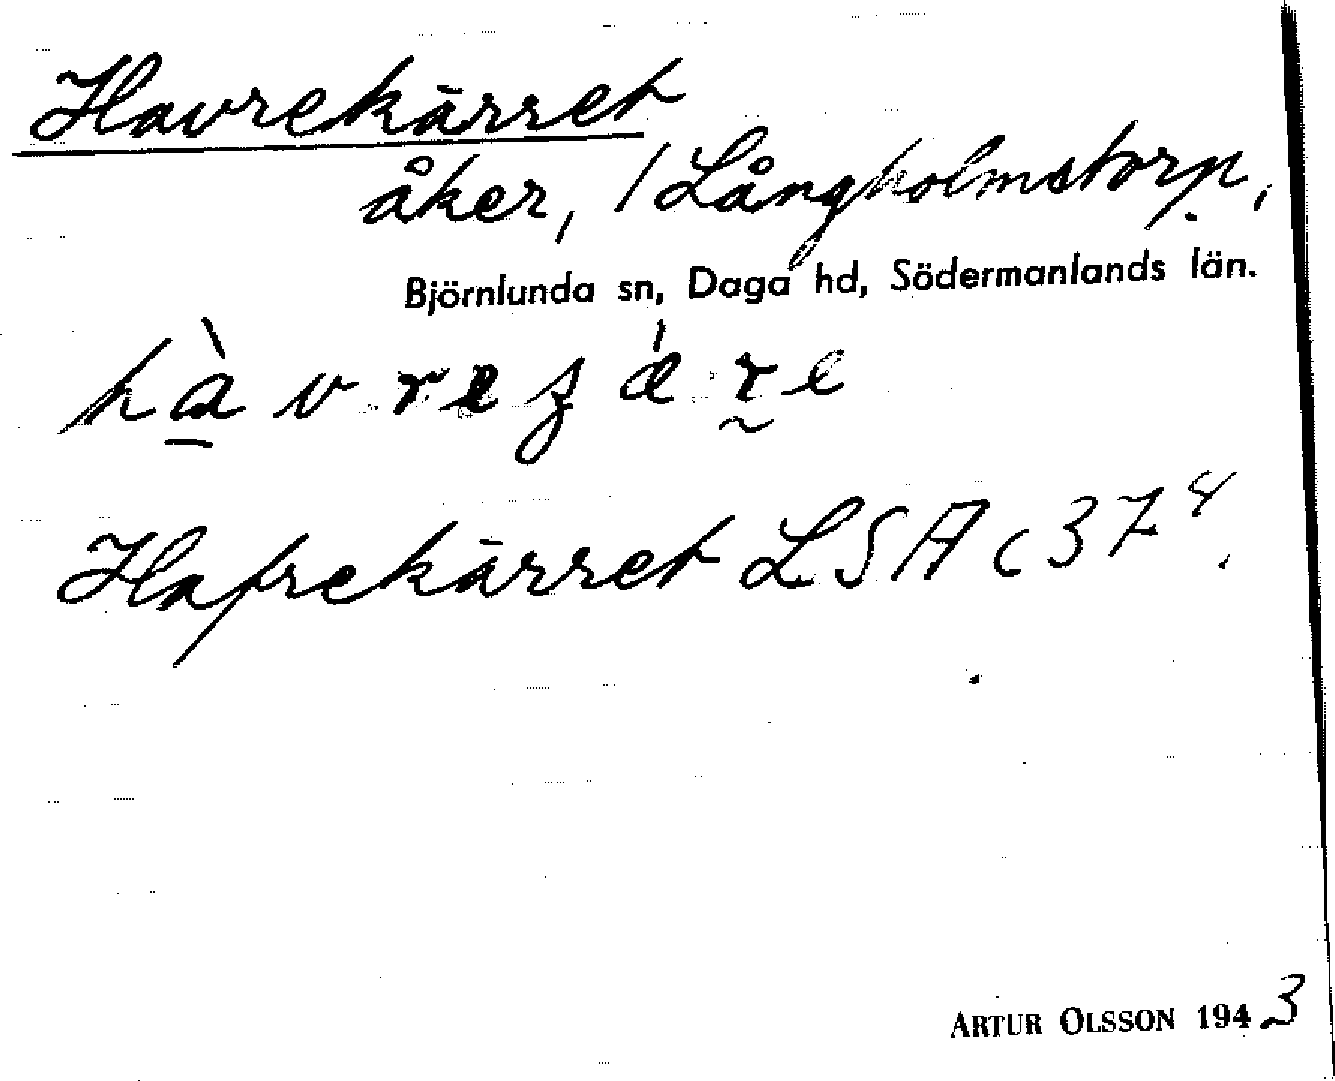 Havrekärret
åker, / Långholmstorp,
Björnlunda sn, Daga hd, Södermanlands län.
Hafrekärret LSA c 37⁴.
ARTUR OLSSON 1943